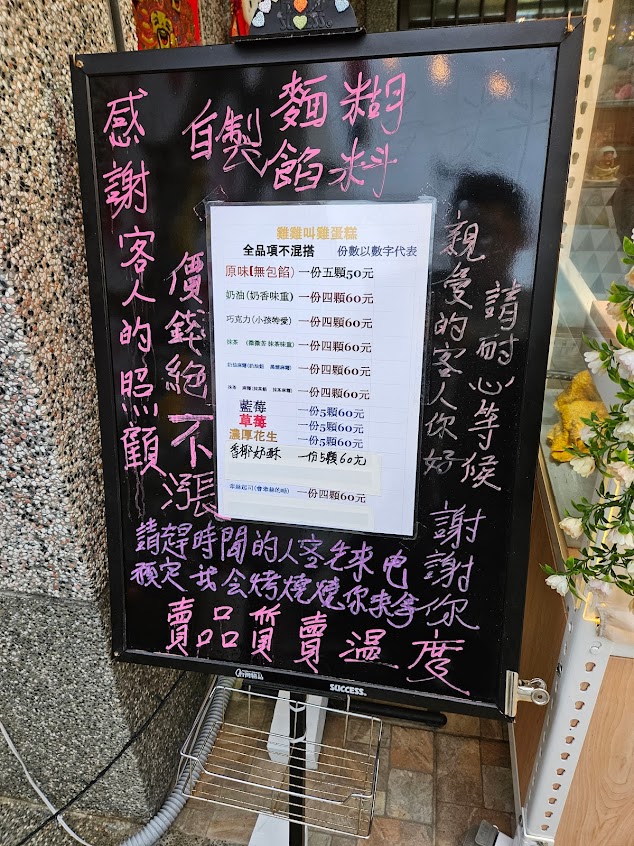 自製麵糊
餡料
感謝客人的照顧
價錢絕不漲
雞雞叫雞蛋糕
全品項不混搭 份數以數字代表
原味(無包餡) 一份五顆50元
奶油(奶香味重) 一份四顆60元
巧克力(小孩等愛) 一份四顆60元
抹茶 (微微苦 抹茶味重) 一份四顆60元
一份四顆60元
一份四顆60元
藍莓 一份5顆60元
草莓 一份5顆60元
濃厚花生 一份5顆60元
香椰奶酥 一份5顆60元
一份四顆60元
親愛的客人你好
請耐心等候
謝謝你
請趕時間的人客先來電
預定 我會烤燒燒你來拿
賣品質賣溫度
SUCCESS